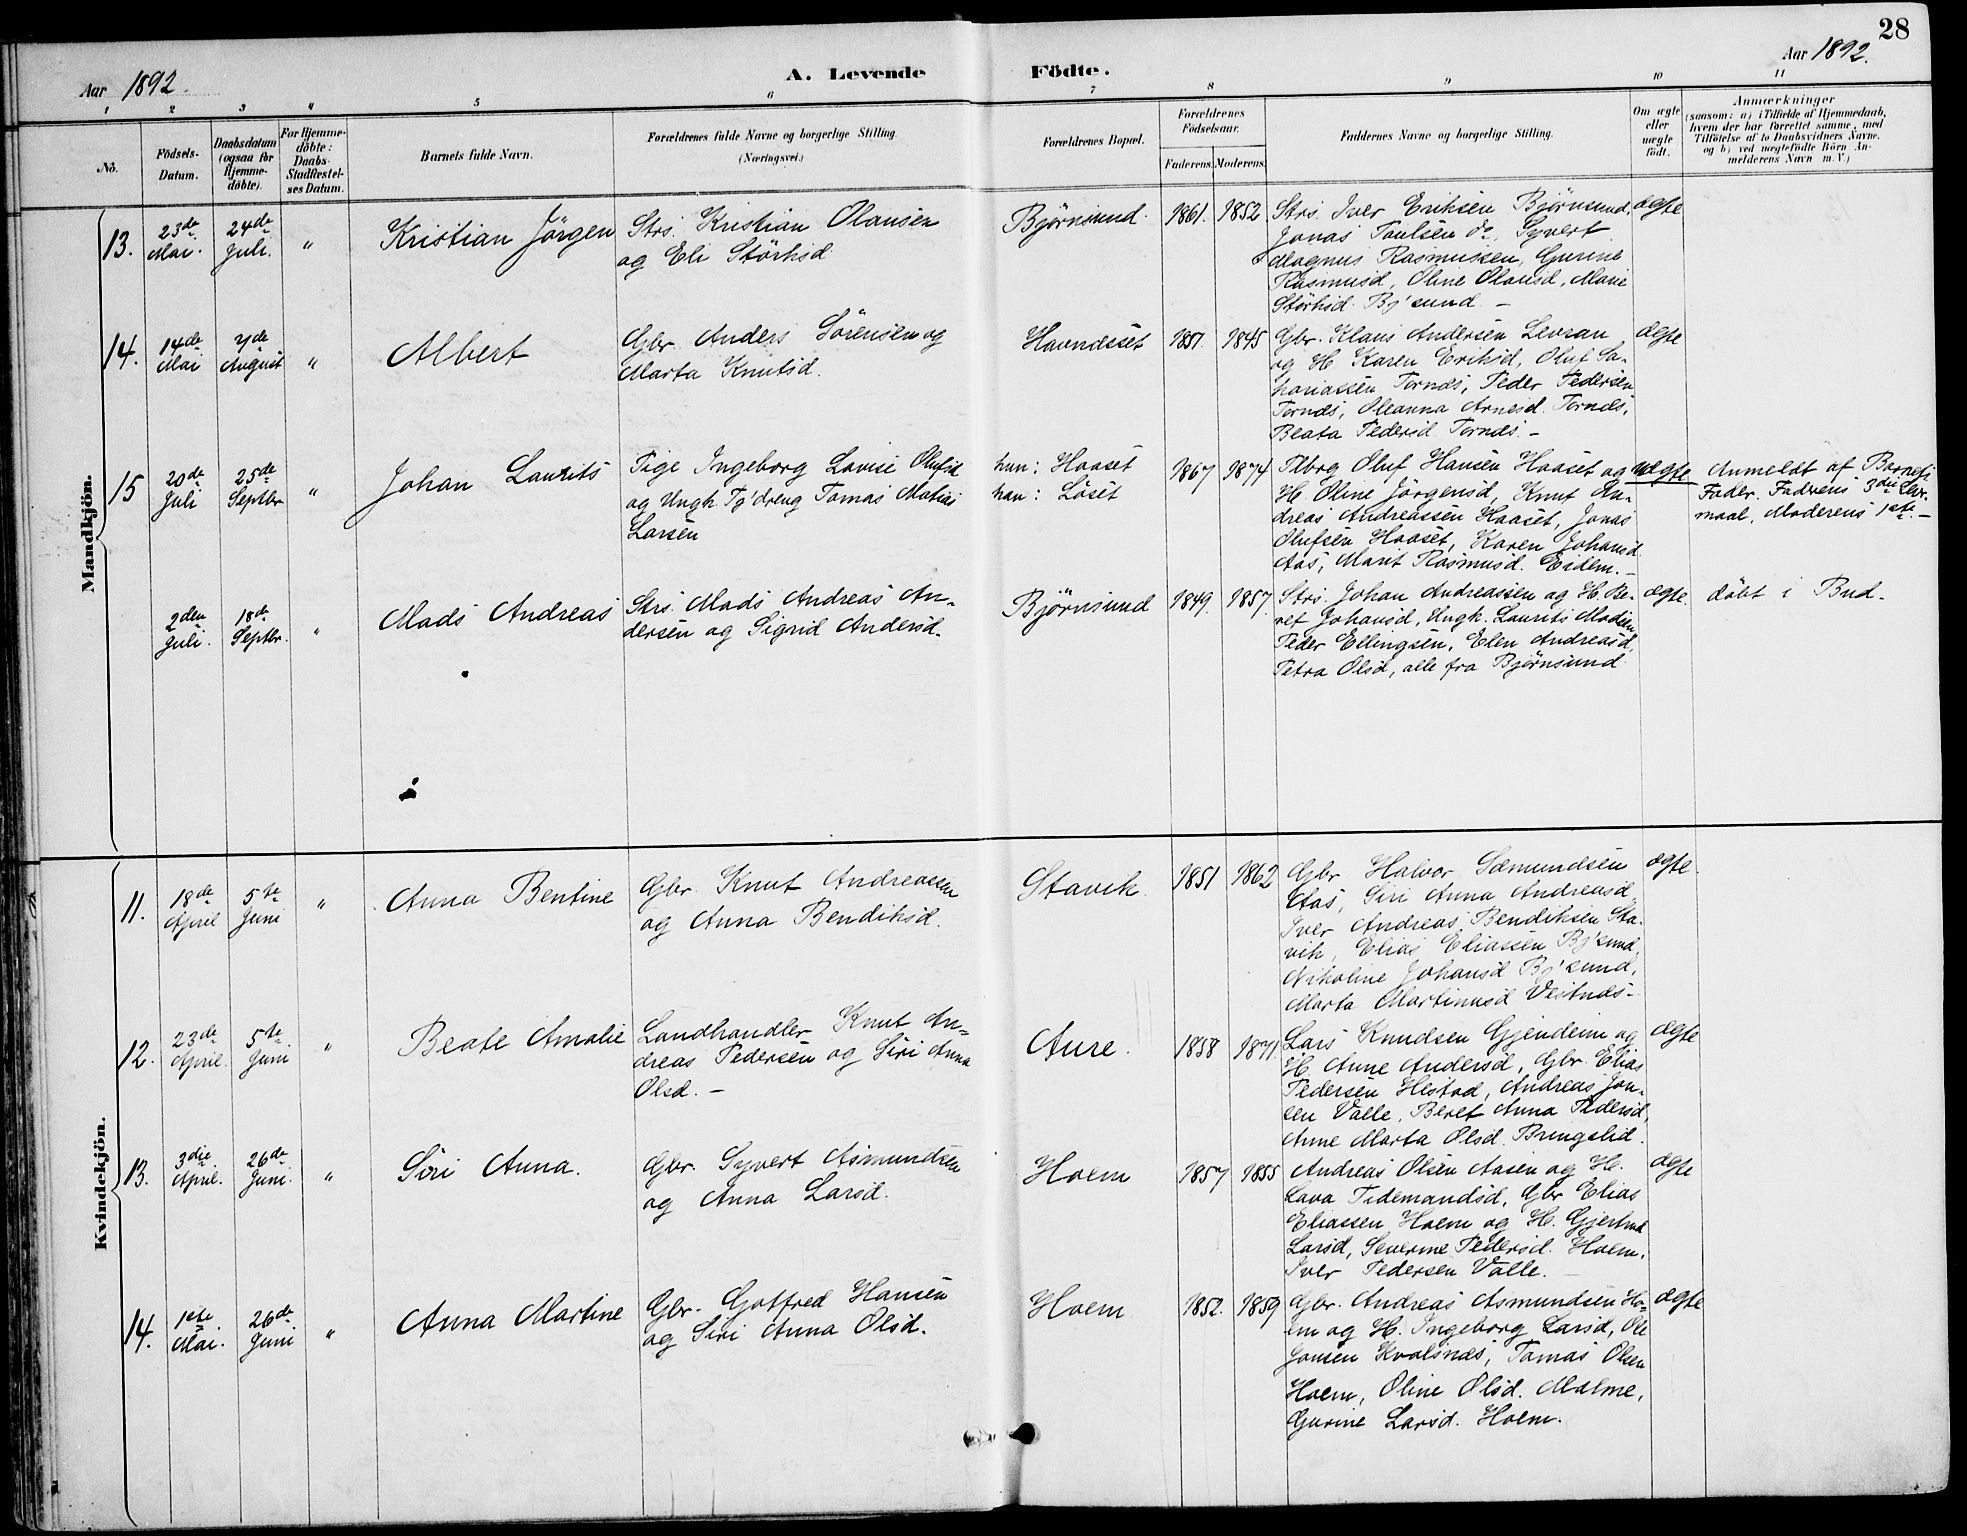 28
Aar 1892. A. Levende Födte. Aar 1892.
1 2 3 " 5 6 7 8 9 10 11
No.
Födsels-Datum.
Daabsdatum (ogsaa for Hjemme-döbte).
For Hjemme-döbte: Daabs-Stadfæstel-ses Datum.
Barnets fulde Navn.
Forældrenes fulde Navne og borgerlige Stilling
(Næringsvei.)
Forældrenes Bopæl.
Forældrenes Födselsaar.
Faderens. Moderens.
Faddernes Navne og borgerlige Stilling.
Om ægte eller uægte födt.
Anmærkninger
(saasom: a) i Tilfælde af Hjemmedaab,
hvem der har forrettet samme, med
Tilföielse af to Daabsvidners Navne.
og b) ved uægtefödte Börn An-
melderens Navn m. V.)
Mandkjön.
13. 23de Mai. 24de Juli. " Kristian Jörgen
Strs. Kristian Olausen
og Eli Störksd.
Björnsund. 1861. 1852
Strs. Iver Eriksen Björnsund,
Jonas Poulsen do, Syvert
Magnus Rasmussen, Gurine
Rasmusd, Oline Olausd, Marie
Störksd. Bj'sund. -
ægte
14. 14de Mai 7de August " Albert
Gbr. Anders Sörensen og
Marta Knutsd.
Havnæsset 1851. 1845
Gbr. Klaus Andersen Levran
og H. Karen Eriksd, Oluf Sa-
kariassen Tornæs, Peder Pedersen
Tornæs, Oleanna Arnesd. Tornæs,
Beata Pedersd Tornæs. -
ægte
15 20de Juli 25de Septbr " Johan Laurits
Pige Ingeborg Lovise Olufsd
og Ungk. Tj'dreng Tomas Matias
Larsen
hun: Haaset
han: Löset
1867 1874
Plbrg Oluf Hansen Haaset og
H. Oline Jörgensd, Knut An-
dreas Andreassen Haaset, Jonas
Olufsen Haaset, Karen Johansd.
Aas, Marit Rasmusd. Eidem. -
uægte
Anmeldt af Barnets
Fader. Fadrens 3die Leier-
maal, Moderens 1ste. -
2den Juli. 18de Septbr. " Mads Andreas
Strs. Mads Andreas An-
dersen og Sigrid Andersd.
Björnsund 1849. 1857.
Strs. Johan Andreassen og H. Be-
ret Johansd, Ungk. Laurits Madsen,
Peder Ellingsen, Elen Andreasd,
Petra Olsd, alle fra Björnsund.
ægte. döbt i Bud.
Kvindekjön.
11. 18de April 5te Juni " Anna Bentine
Gbr. Knut Andreassen
og Anna Bendiksd.
Stavik. 1851 1862
Gbr. Halvor Sæmundsen
Aas, Siri Anna Andreasd,
Iver Andreas Bendiksen Sta-
vik, Elias Eliassen Bj'sund,
Nikoline Johansd Bj'sund,
Marta Martinusd Vestnæs.-
ægte.
12. 23de April. 5te Juni. " Beate Amalie
Landhandler Knut An-
dreas Pedersen og Siri Anna
Olsd. -
Aure. 1858 1871.
Lars Knudsen Gjendeim og
H. Anne Andersd, Gbr. Elias
Pedersen Hestad, Andreas Jon-
sen Valle, Beret Anna Pedersd,
Anne Marta Olsd. Bringslid.
ægte
13. 3die April. 26de Juni. " Siri Anna.
Gbr. Syvert Asmundsen
og Anna Larsd.
Hoem 1857 1855
Andreas Olsen Aasen og H.
Lava Tidemandsd, Gbr Elias
Eliassen Hoem og H. Gjertrud
Larsd, Severine Pedersd. Hoem,
Iver Pedersen Valle. -
ægte
14. 1ste Mai. 26de Juni " Anna Martine
Gbr. Gotfred Hansen
og Siri Anna Olsd.
Hoem 1852. 1859
Gbr. Andreas Asmundsen Ho-
em og H. Ingeborg Larsd, Ole
Jonsen Kvalsnæs, Tomas Olsen
Hoem, Oline Olsd. Malme,
Gurine Larsd. Hoem.
ægte